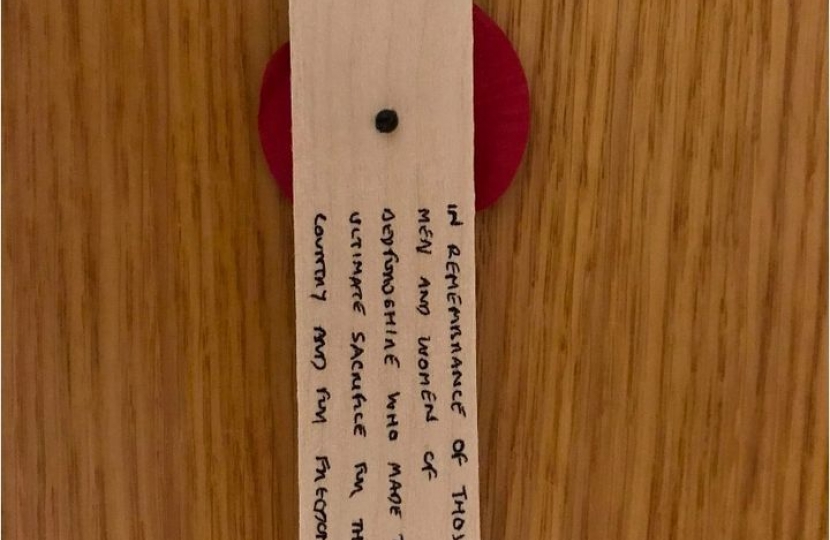 IN REMEMBRANCE OF THOS
MEN AND WOMEN OF
BEDFORDSHIRE WHO MADE T
ULTIMATE SACRIFICE FOR TH
COUNTRY AND FOR FREEDOM